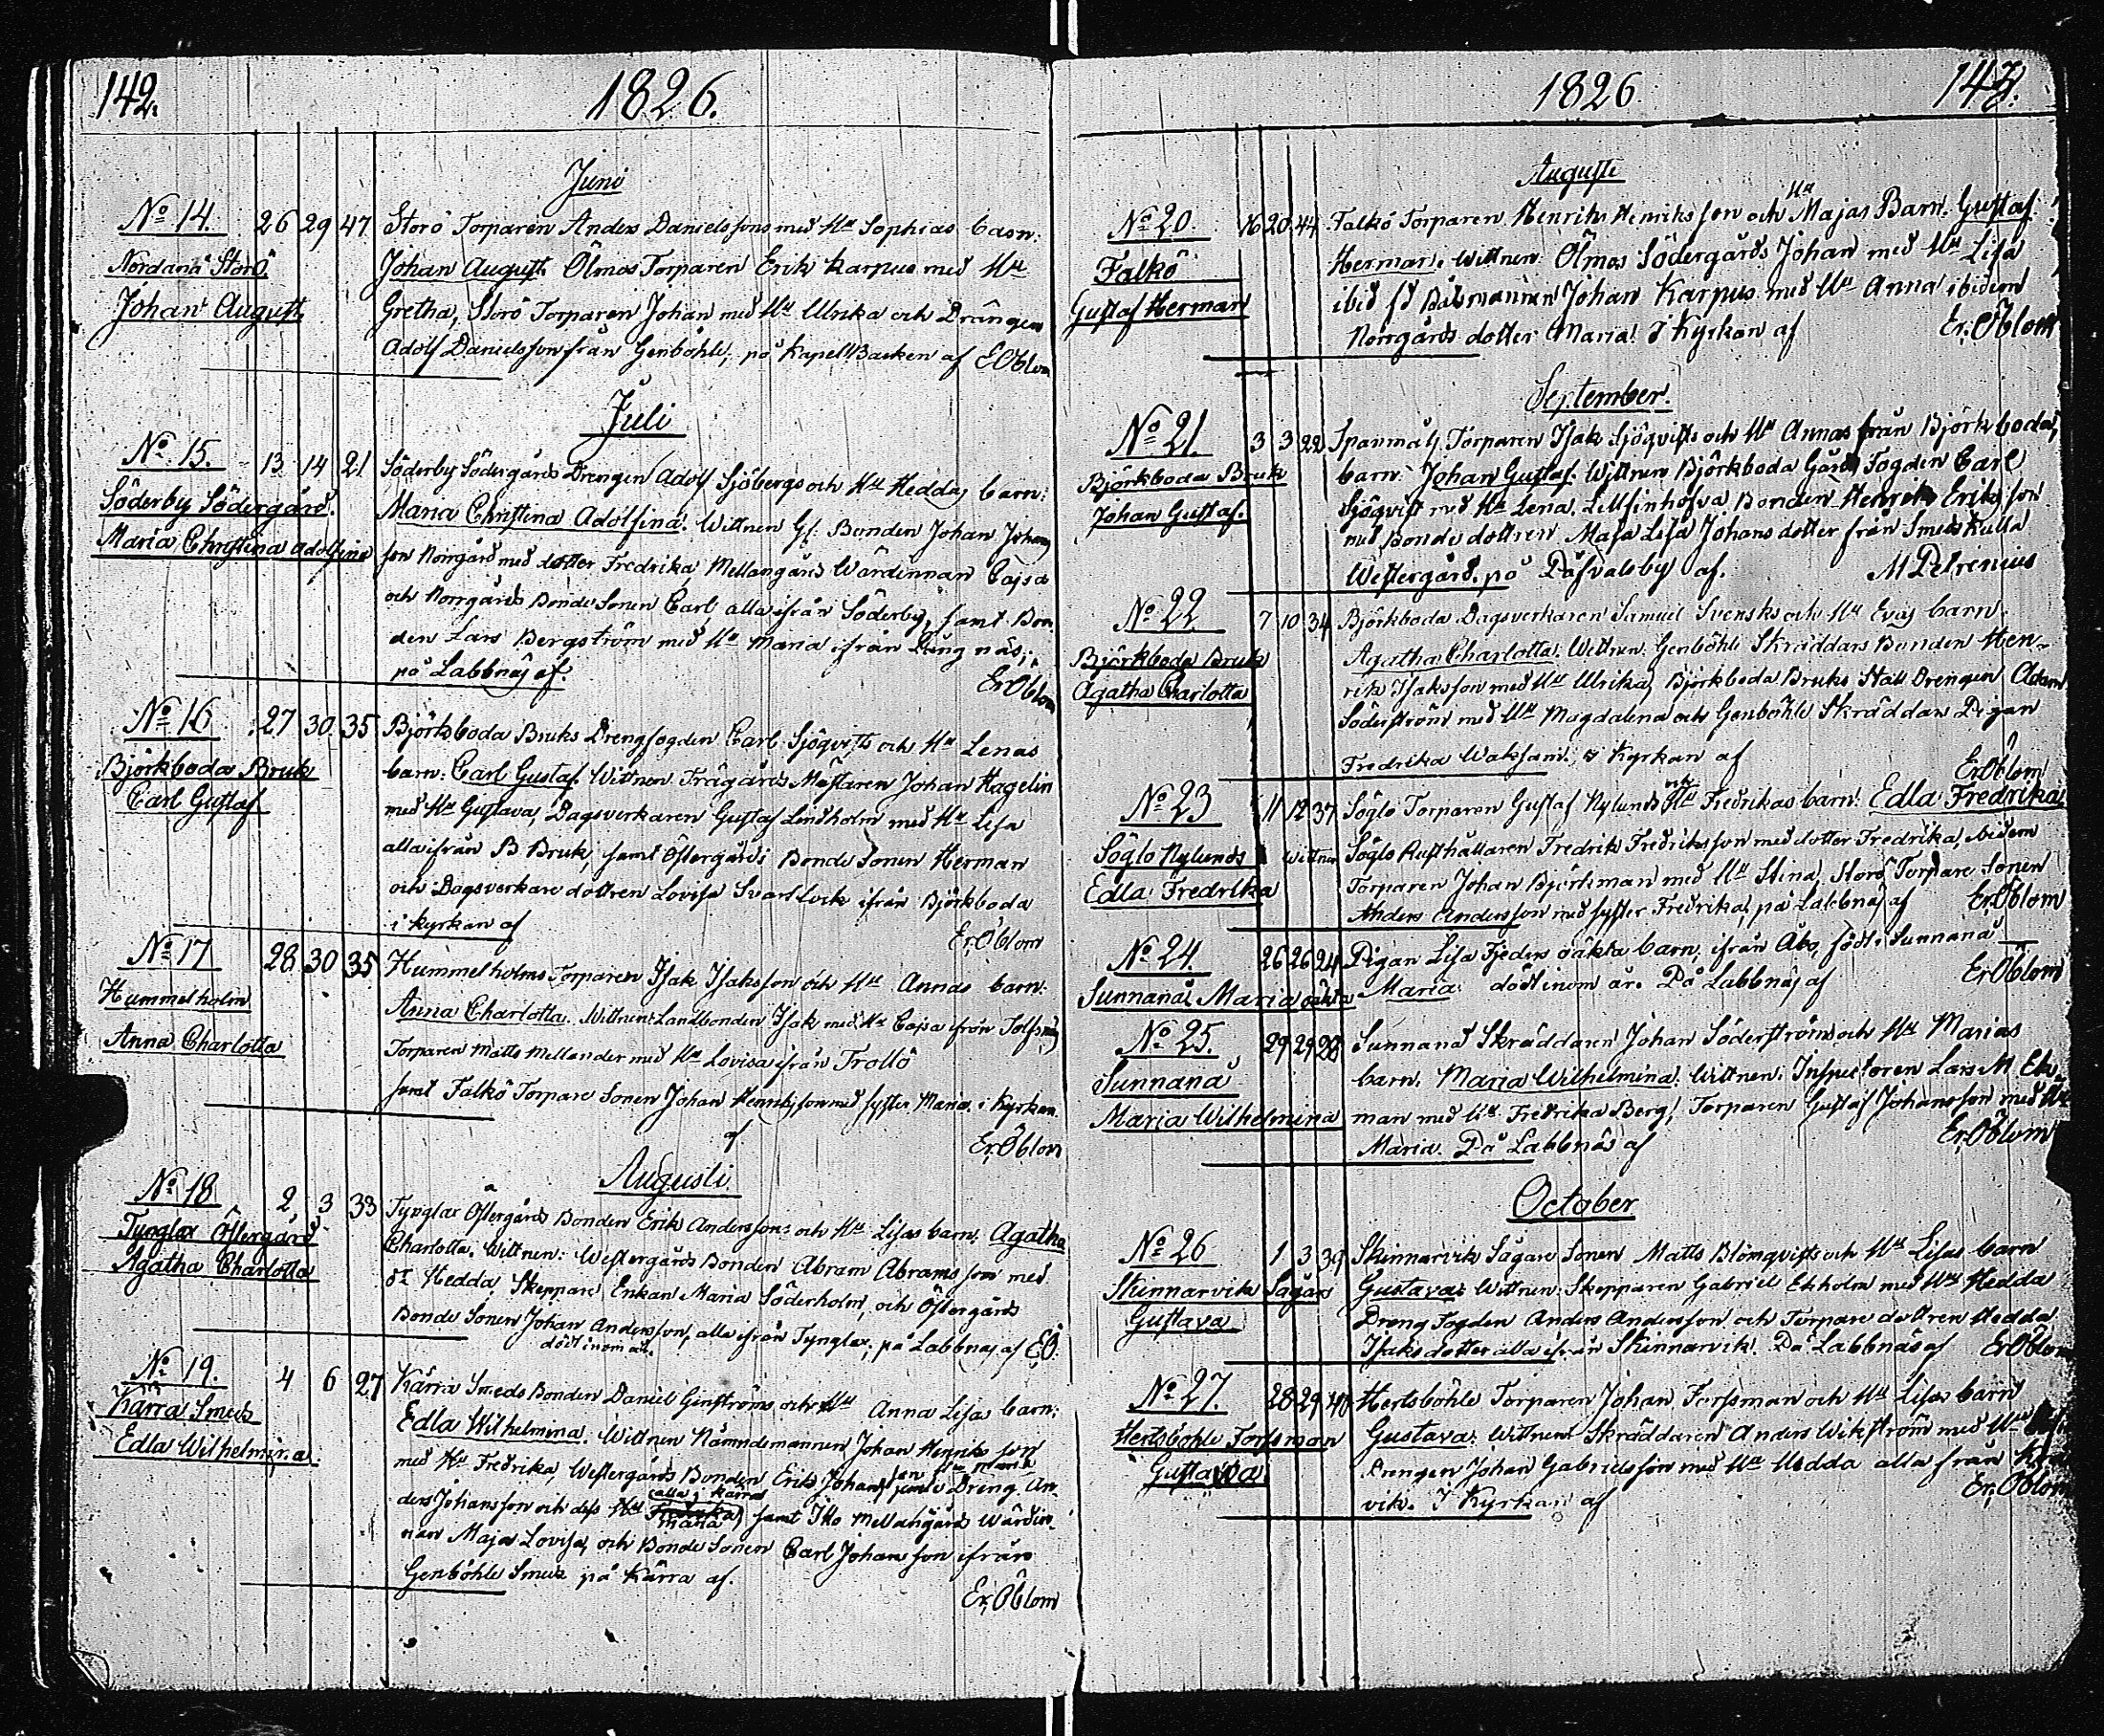 142.
1826.
Juni
No 14. 26 29 47 Storö Torparen Anders Danielssons med Hu Sophias barn:
Nordanå Storö Johan August. Ölmos Torparen Erik Karpus med Hu
Johan August Gretha, Storö Torparen Johan med Hu Ulrika och Drängen
Adolf Danielsson från Genböhle, på Kapell Backen af EÖblom
Juli
No 15. 13 14 21 Söderby Södergårds Drengen Adolf Sjöbergs och Hu Heddas barn:
Söderby Södergård. Maria Christina Adolfina. Wittnen Gl: Bonden Johan Johans
Maria Christina Adolfina son Norrgård med dotter Fredrika, Mellangårds Wärdinnan Cajsa
och Norrgårds Bonde Sonen Carl, alla ifrån Söderby, samt Bon
den Lars Bergström med Hu Maria ifrån Långnäs,
på Labbnäs af. Er. Öblom
No 16 27 30 35 Björkboda Bruks Drengfogden Carl Sjöqvists och Hu Lenas
Björkboda Bruk barn: Carl Gustaf. Wittnen Trägårds Mästaren Johan Hagelin
Carl Gustaf med Hu Gustava, Dagsverkaren Gustaf Lindholm med Hu Lisa
alla ifrån B Bruk, samt Östergårds Bonde Sonen Herman
och Dagsverkare dottren Lovisa Svartlock ifrån Björkboda
i Kyrkan af Er. Öblom
No 17 28 30 35 Hummelholms Torparen Isak Isaksson och Hu Annas barn:
Hummelholm Anna Charlotta. Wittnen: Landbonden Isak med Hu Cajsa ifrån
Anna Charlotta Torparen Matts Mellander med Hu Lovisa ifrån Trollö
samt Falkö Torpare Sonen Johan Henriksson med syster Maria. i Kyrkan
af Er. Öblom
Augusti.
No 18 2 3 33 Tynglax Östergårds Bonden Erik Anderssons och Hu Lisas barn: Agatha
Tynglax Östergård Charlotta. Wittnen: Westergårds Bonden Abram Abramsson med
Agatha Charlotta Hedda, Skeppare Enkan Maria Söderholm, och Östergårds
Bonde Sonen Johan Andersson, alla ifrån Tynglax, på Labbnäs af E.Ö.
död inom år.
No 19. 4 6 27 Kärra Smeds Bonden Daniel Genströms och Hu Anna Lisas barn:
Kärra Smeds Edla Wilhelmina. Wittnen Nämndemannen Johan Henriksson
Edla Wilhelmina. med Hu Fredrika, Westergårds Bonden Erik Johansson Dreng An-
alla i Kärra
ders Johansson och dess Hu Maria samt Illo Mellangårds Wärdin-
nan Maja Lovisa, och Bonde Sonen Carl Johansson ifrån
Genböhle Smeds på Kärra af.
Er. Öblom
1826
143.
Augusti
No 20. 16 20 44 Falkö Torparen Henrik Henriksson och Hu Majas Barn. Gustaf
Falkö Herman. Wittnen Ölmos Södergårds Johan med Hu Lisa
Gustaf Herman ibid Båtsmannen Johan Karpus med Hu Anna ibidem
Norrgårds dotter Maria. I Kyrkan af Er. Öblom
September.
No 21. 3 3 22 Torparen Isak Sjöqvists och Hu Annas från Björkboda,
Björkboda Bruk barn: Johan Gustaf. Wittnen Björkboda Gårds Fogden Carl
Johan Gustaf. Sjöqvist med Hu Lena, Bonden Henrik Eriksson
med Bonde dottren Maja Lisa Johans dotter från Smeds Kulla
Westergård. på Dåfvalsby af. M Petrenius
No 22 7 10 34 Björkboda Dagsverkaren Samuel Svensks och Hu Evas barn.
Björkboda Bruk Agatha Charlotta. Wittnen. Genböhle Skräddars Bonden Hen-
Agatha Charlotta rik Isaksson med Hu Ulrika, Björkboda Bruks Stall Drengen Adam
Söderström med Hu Magdalena och Genböhle Skräddars Pigan
Fredrika Waksam. i Kyrkan af Er. Öblom
No 23 11 12 37 Söglö Torparen Gustaf Nylunds och Hu Fredrikas barn. Edla Fredrika
Söglö Nylunds Wittnen Söglö Rusthållaren Fredrik Fredriksson med dotter Fredrika, ibidem
Edla Fredrika Torparen Johan Björkman med Hu Stina, Storö Torpare Sonen
Anders Andersson med syster Fredrika, på Labbnäs af Er. Öblom
No 24. 26 26 24 Pigan Lisa Fjeders oäkta barn, ifrån Åbo, född i Sunnanå
Sunnanå Maria oäkta Maria. död inom år. På Labbnäs af Er Öblom
No 25. 29 29 28 Sunnanå Skräddaren Johan Söderströms och Hu Marias
Sunnanå barn. Maria Wilhelmina. Wittnen. Inspectoren Lars M Ek-
Maria Wilhelmina man med Hu Fredrika Berg, Torparen Gustaf Johansson med Hu
Maria. På Labbnäs af Er. Öblom
October
No 26 1 3 39 Skinnarvik Sågare Sonen Matts Blomqvists och Hu Lisas barn
Skinnarvik Sågars Gustava. Wittnen Skepparen Gabriel Ekholm med Hu Hedda
Gustava Dreng Fogden Anders Andersson och Torpare dottren Hedda
Isaksdotter alla ifrån Skinnarvik. På Labbnäs af Er Öblom
No 27. 28 29 40 Hertsböhle Torparen Johan Forssman och Hu Lisas barn
Hertsböhle Forssman Gustava. Wittnen Skräddaren Anders Wikström med Hu
Gustava Drengen Johan Gabrielsson med Hu Hedda alla från
vik. I Kyrkan af Er. Öblom